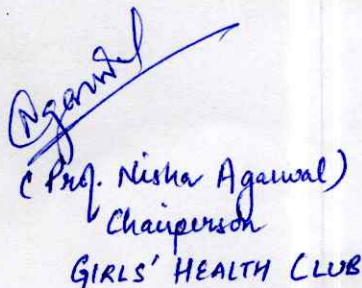 Agarwal
(Prof. Nisha Agarwal)
Chairperson
GIRLS' HEALTH CLUB